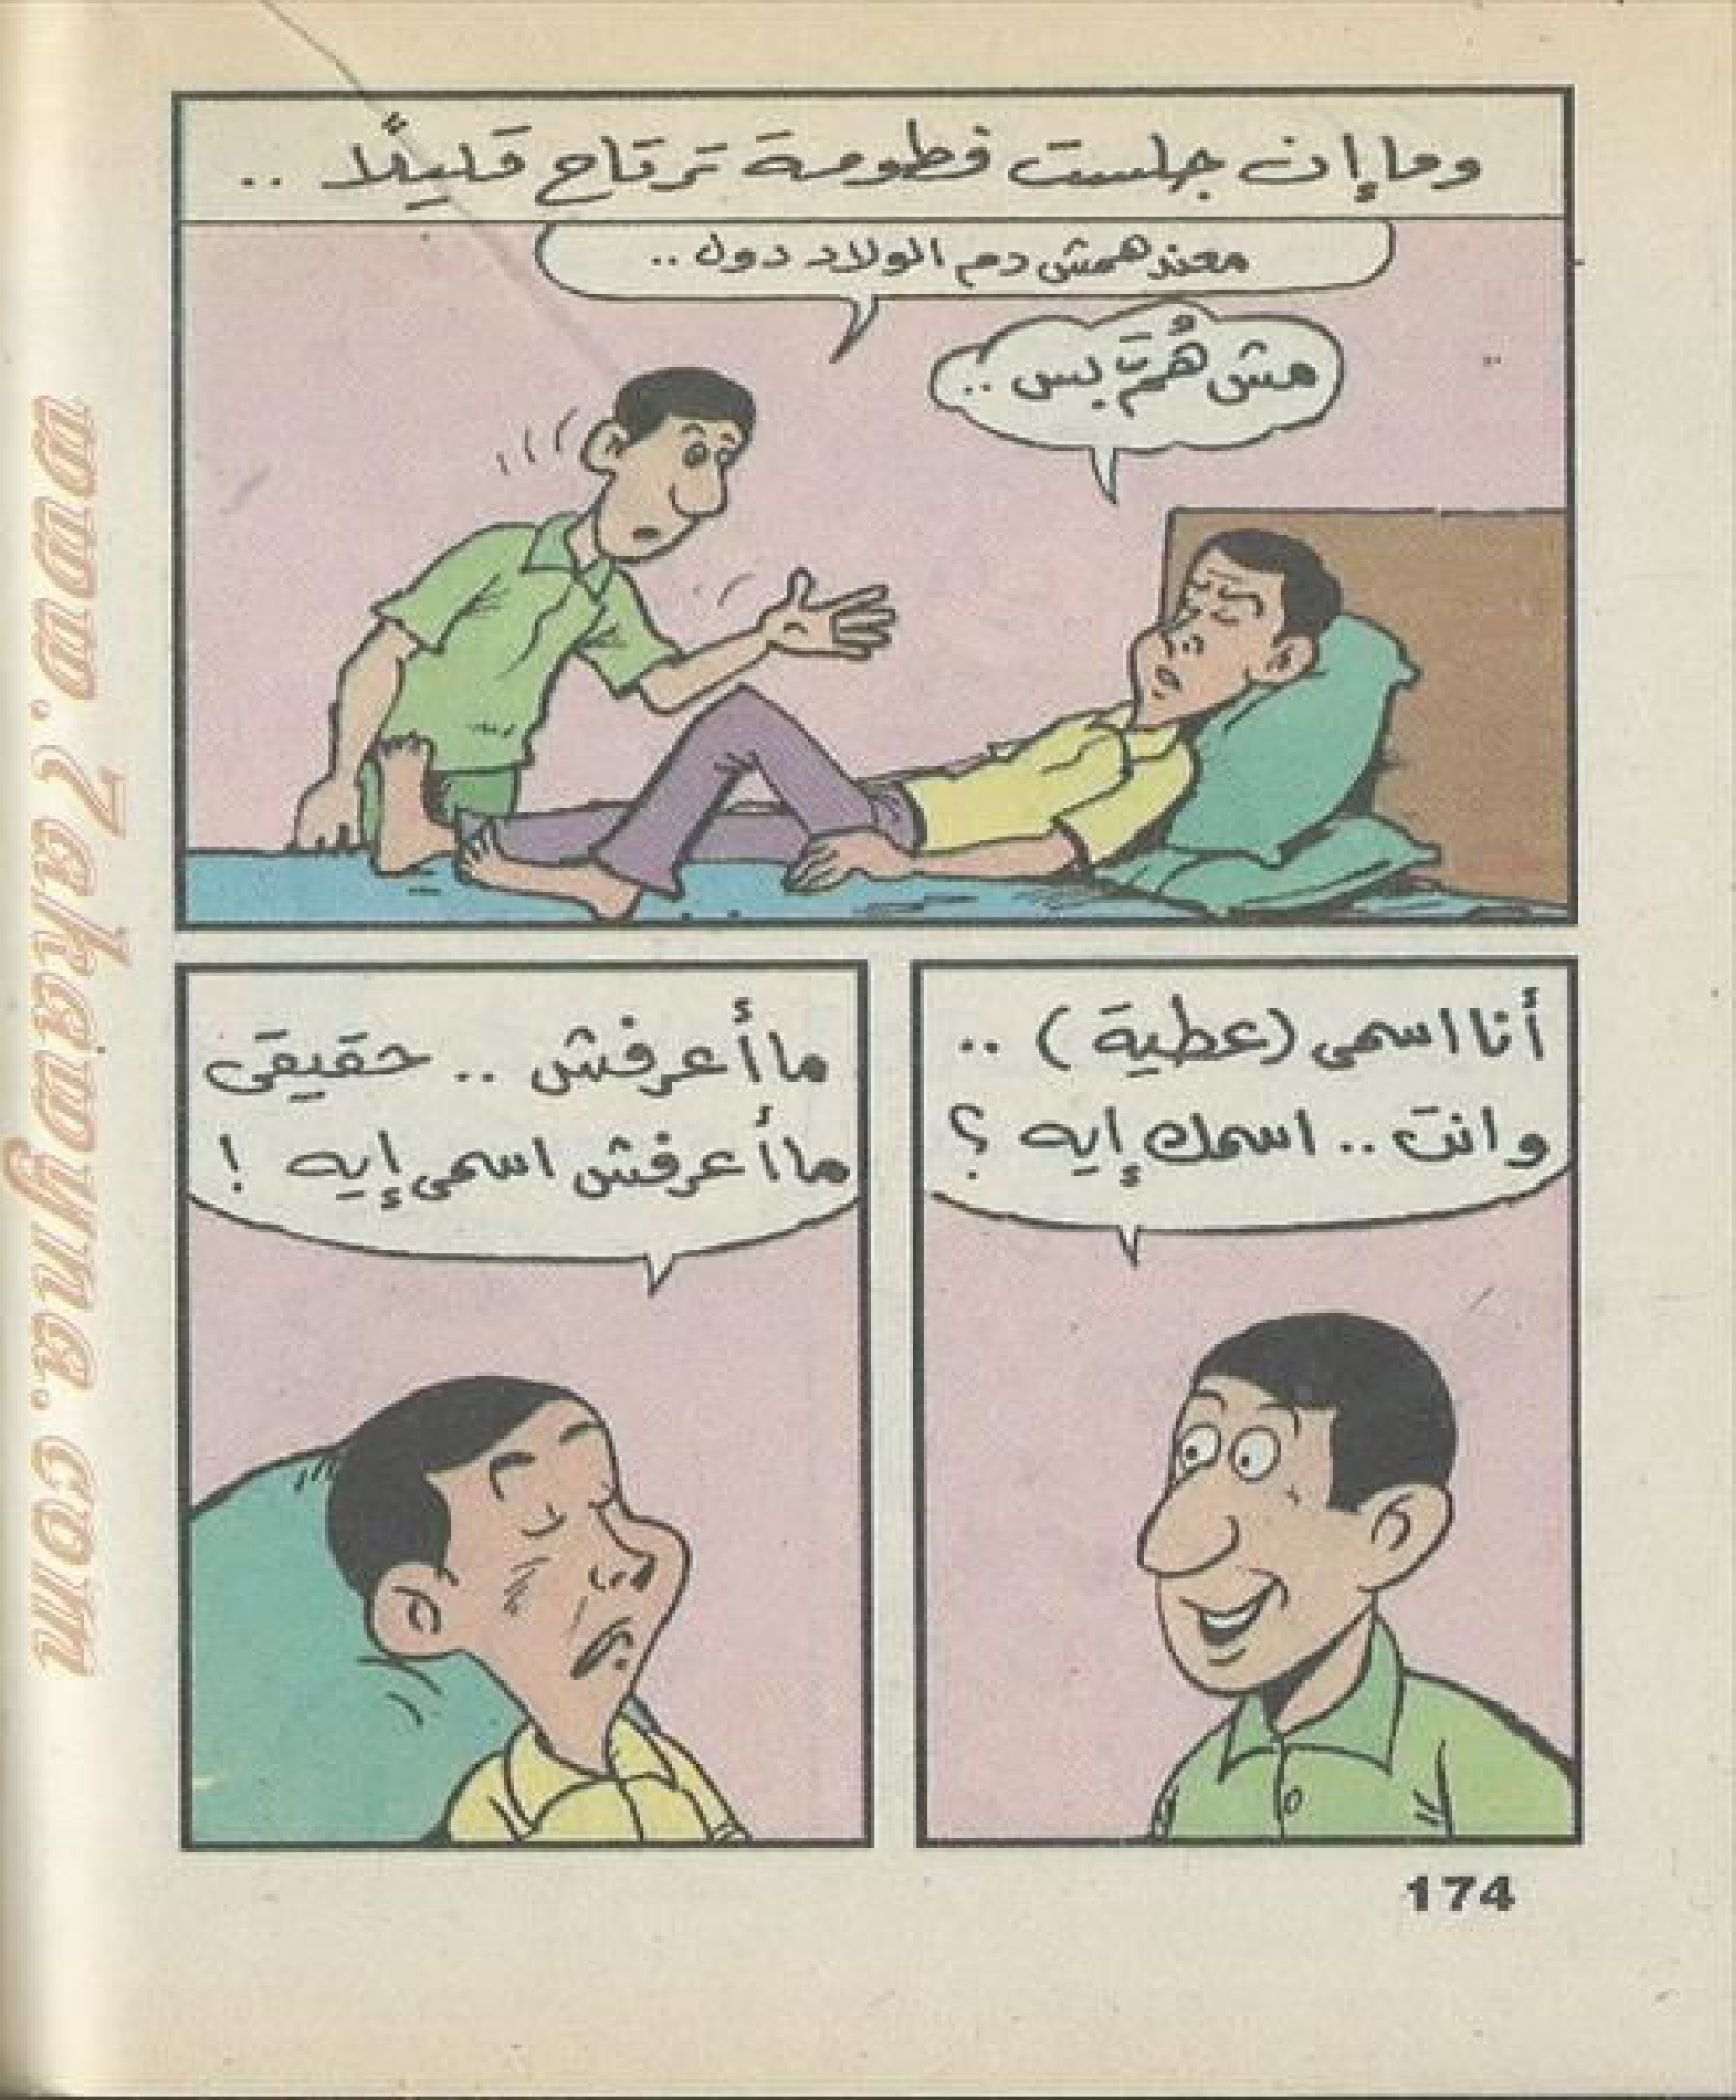 وما إن جلست فطومة ترتاح قليلًا ..
معندهمش دم الولاد دول ..
مش هُمَّ بس ..
أنا اسمى (عطية) ..
وانت .. اسمك إيه ؟
ما أعرفش .. حقيقى
ما أعرفش اسمى إيه !
174
www.7akawyna.com